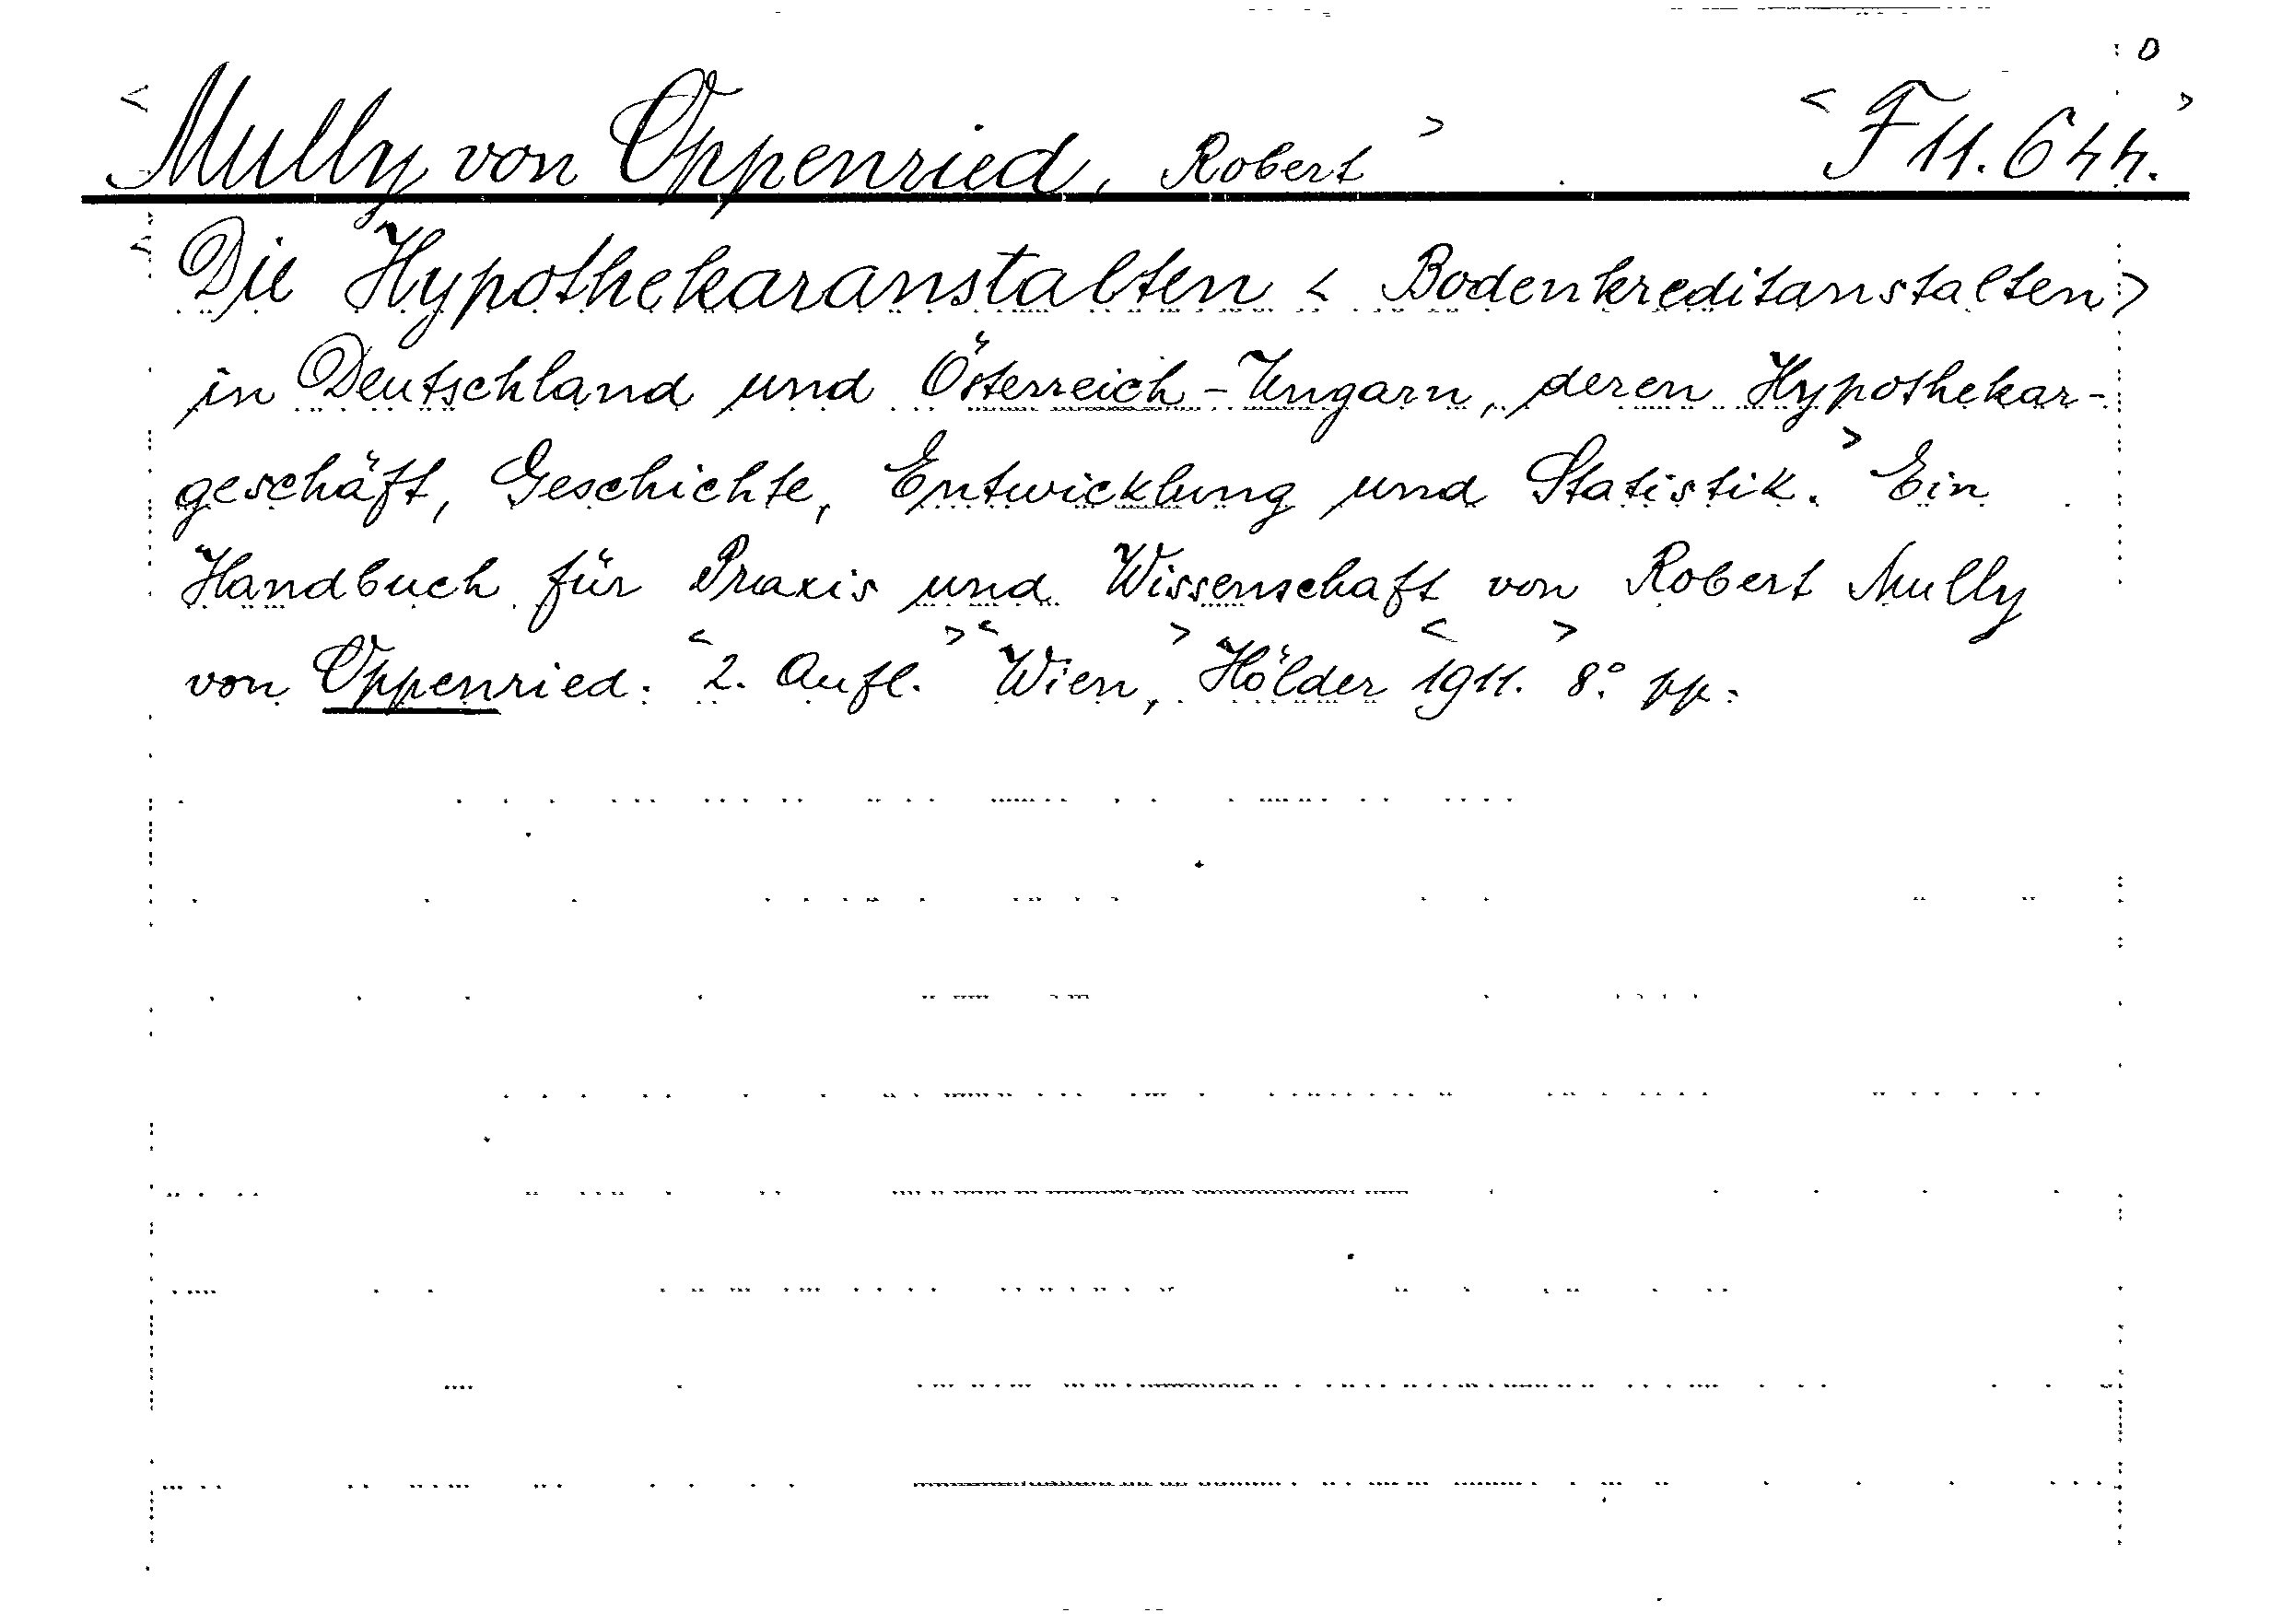 0
<Mully von Oppenried, Robert> <F 11.644.>
<Die Hypothekaranstalten < Bodenkreditanstalten>
in Deutschland und Österreich-Ungarn, deren Hypothekar-
geschäft, Geschichte, Entwicklung und Statistik.> Ein
Handbuch für Praxis und Wissenschaft von Robert Mully
von Oppenried. <2. Aufl.> <Wien,> Hölder <1911.> 8° pp.